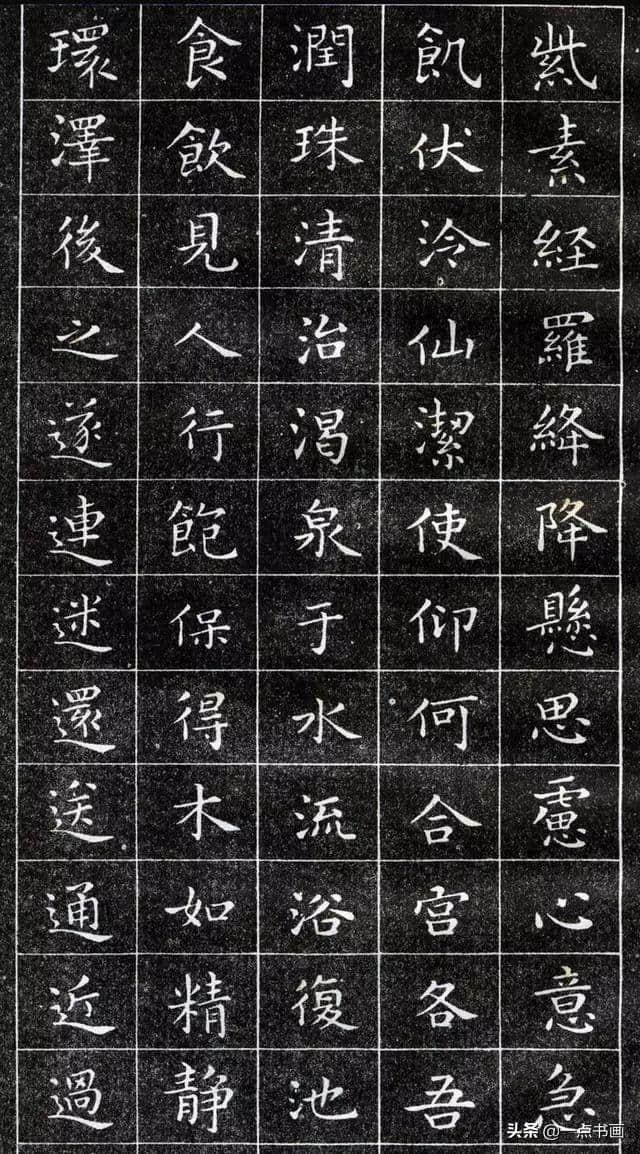 紫素経羅絳降懸思慮心意急
飢伏泠仙潔使仰何合宮各吾
潤珠清治渇泉于水流浴復池
食飲見人行飽保得木如精靜
環澤後之遂連迷還送通近過
头条@一点书画